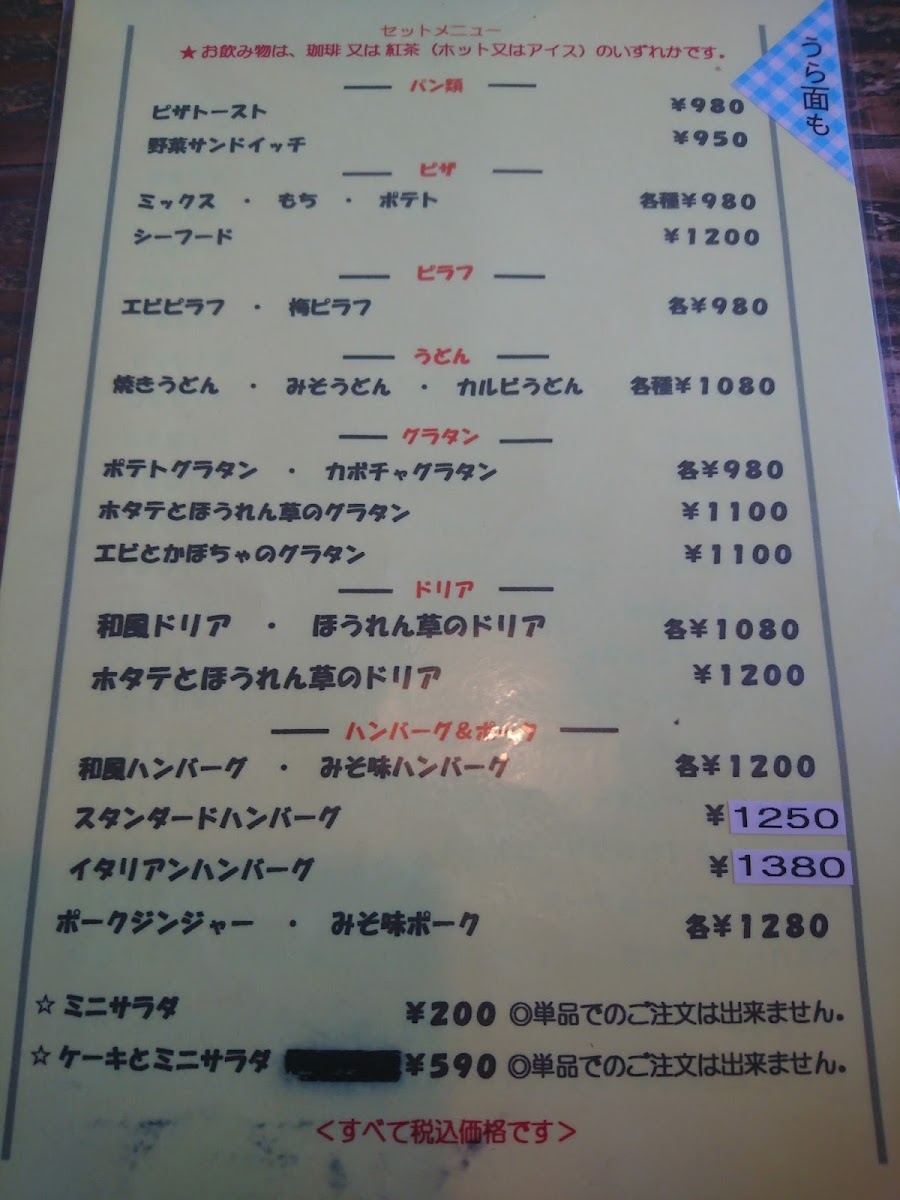 セットメニュー
★お飲み物は、珈琲 又は 紅茶（ホット又はアイス）のいずれかです。
うら面も
パン類
ピザトースト ￥980
野菜サンドイッチ ￥950
ピザ
ミックス ・ もち ・ ポテト 各種￥980
シーフード ￥1200
ピラフ
エビピラフ ・ 梅ピラフ 各￥980
うどん
焼きうどん ・ みそうどん ・ カルビうどん 各種￥1080
グラタン
ポテトグラタン ・ カボチャグラタン 各￥980
ホタテとほうれん草のグラタン ￥1100
エビとかぼちゃのグラタン ￥1100
ドリア
和風ドリア ・ ほうれん草のドリア 各￥1080
ホタテとほうれん草のドリア ￥1200
ハンバーグ＆ポーク
和風ハンバーグ ・ みそ味ハンバーグ 各￥1200
スタンダードハンバーグ ￥1250
イタリアンハンバーグ ￥1380
ポークジンジャー ・ みそ味ポーク 各￥1280
☆ミニサラダ ￥200 ◎単品でのご注文は出来ません。
☆ケーキとミニサラダ ￥590 ◎単品でのご注文は出来ません。
＜すべて税込価格です＞